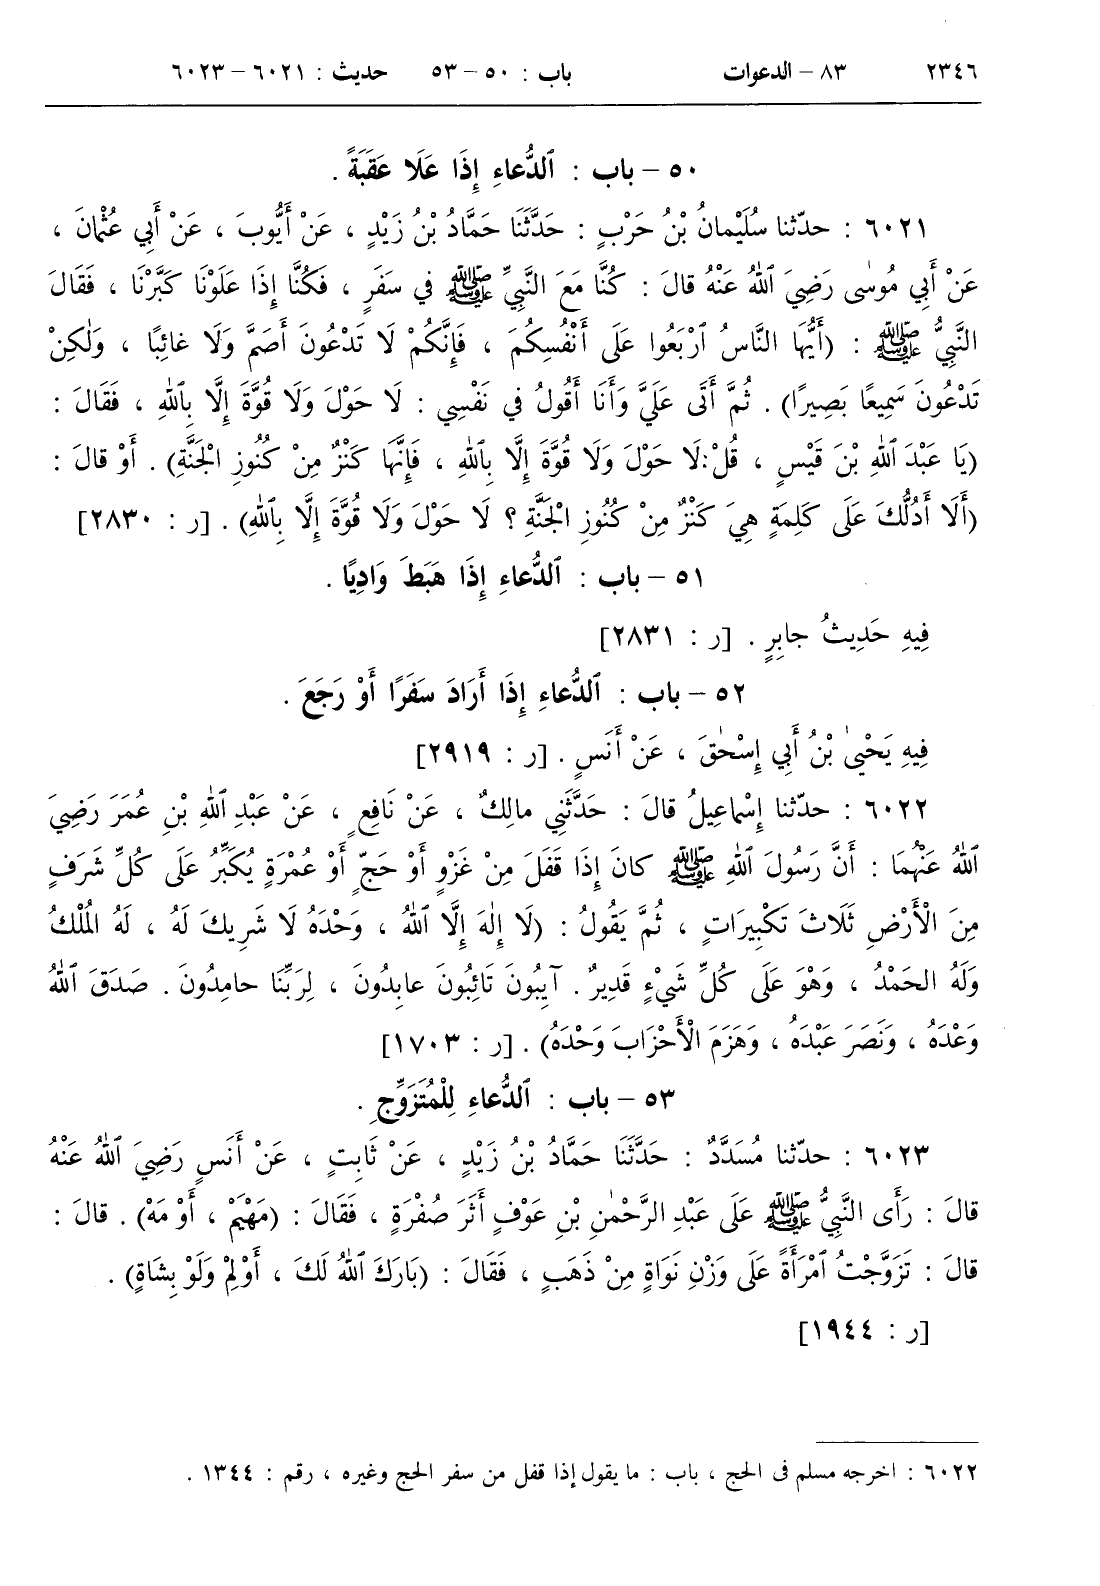 ٢٣٤٦ ٨٣ – الدعوات باب : ٥٠ – ٥٣ حديث : ٦٠٢١ – ٦٠٢٣
٥٠ – باب : ٱلدُّعاءِ إِذَا عَلَا عَقَبَةً .
٦٠٢١ : حدّثنا سُلَيْمانُ بْنُ حَرْبٍ : حَدَّثَنَا حَمَّادُ بْنُ زَيْدٍ ، عَنْ أَيُّوبَ ، عَنْ أَبِي عُثْمانَ ،
عَنْ أَبِي مُوسٰى رَضِيَ ٱللهُ عَنْهُ قالَ : كُنَّا مَعَ النَّبِيِّ ﷺ في سَفَرٍ ، فَكُنَّا إِذَا عَلَوْنَا كَبَّرْنَا ، فَقَالَ
النَّبِيُّ ﷺ : (أَيُّهَا النَّاسُ ٱرْبَعُوا عَلَى أَنْفُسِكُمْ ، فَإِنَّكُمْ لَا تَدْعُونَ أَصَمَّ وَلَا غائِبًا ، وَلٰكِنْ
تَدْعُونَ سَمِيعًا بَصِيرًا) . ثُمَّ أَتَى عَلَيَّ وَأَنَا أَقُولُ في نَفْسِي : لَا حَوْلَ وَلَا قُوَّةَ إِلَّا بِٱللهِ ، فَقَالَ :
(يَا عَبْدَ ٱللهِ بْنَ قَيْسٍ ، قُلْ : لَا حَوْلَ وَلَا قُوَّةَ إِلَّا بِٱللهِ ، فَإِنَّهَا كَنْزٌ مِنْ كُنُوزِ الْجَنَّةِ) . أَوْ قالَ :
(أَلَا أَدُلُّكَ عَلَى كَلِمَةٍ هِيَ كَنْزٌ مِنْ كُنُوزِ الْجَنَّةِ ؟ لَا حَوْلَ وَلَا قُوَّةَ إِلَّا بِٱللهِ) . [ر : ٢٨٣٠]
٥١ – باب : ٱلدُّعاءِ إِذَا هَبَطَ وَادِيًا .
فِيهِ حَدِيثُ جابِرٍ . [ر : ٢٨٣١]
٥٢ – باب : ٱلدُّعاءِ إِذَا أَرَادَ سَفَرًا أَوْ رَجَعَ .
فِيهِ يَحْيىٰ بْنُ أَبِي إِسْحٰقَ ، عَنْ أَنَسٍ . [ر : ٢٩١٩]
٦٠٢٢ : حدّثنا إِسْماعِيلُ قالَ : حَدَّثَنِي مالِكٌ ، عَنْ نَافِعٍ ، عَنْ عَبْدِ ٱللهِ بْنِ عُمَرَ رَضِيَ
ٱللهُ عَنْهُمَا : أَنَّ رَسُولَ ٱللهِ ﷺ كانَ إِذَا قَفَلَ مِنْ غَزْوٍ أَوْ حَجٍّ أَوْ عُمْرَةٍ يُكَبِّرُ عَلَى كُلِّ شَرَفٍ
مِنَ الْأَرْضِ ثَلَاثَ تَكْبِيرَاتٍ ، ثُمَّ يَقُولُ : (لَا إِلٰهَ إِلَّا ٱللهُ ، وَحْدَهُ لَا شَرِيكَ لَهُ ، لَهُ الْمُلْكُ
وَلَهُ الحَمْدُ ، وَهْوَ عَلَى كُلِّ شَيْءٍ قَدِيرٌ . آيِبُونَ تَائِبُونَ عابِدُونَ ، لِرَبِّنَا حامِدُونَ . صَدَقَ ٱللهُ
وَعْدَهُ ، وَنَصَرَ عَبْدَهُ ، وَهَزَمَ الْأَحْزَابَ وَحْدَهُ) . [ر : ١٧٠٣]
٥٣ – باب : ٱلدُّعاءِ لِلْمُتَزَوِّجِ .
٦٠٢٣ : حدّثنا مُسَدَّدٌ : حَدَّثَنَا حَمَّادُ بْنُ زَيْدٍ ، عَنْ ثَابِتٍ ، عَنْ أَنَسٍ رَضِيَ ٱللهُ عَنْهُ
قالَ : رَأَى النَّبِيُّ ﷺ عَلَى عَبْدِ الرَّحْمٰنِ بْنِ عَوْفٍ أَثَرَ صُفْرَةٍ ، فَقَالَ : (مَهْيَمْ ، أَوْ مَهْ) . قالَ :
قالَ : تَزَوَّجْتُ ٱمْرَأَةً عَلَى وَزْنِ نَوَاةٍ مِنْ ذَهَبٍ ، فَقَالَ : (بَارَكَ ٱللهُ لَكَ ، أَوْلِمْ وَلَوْ بِشَاةٍ) .
[ر : ١٩٤٤]
٦٠٢٢ : اخرجه مسلم في الحج ، باب : ما يقول إذا قفل من سفر الحج وغيره ، رقم : ١٣٤٤ .